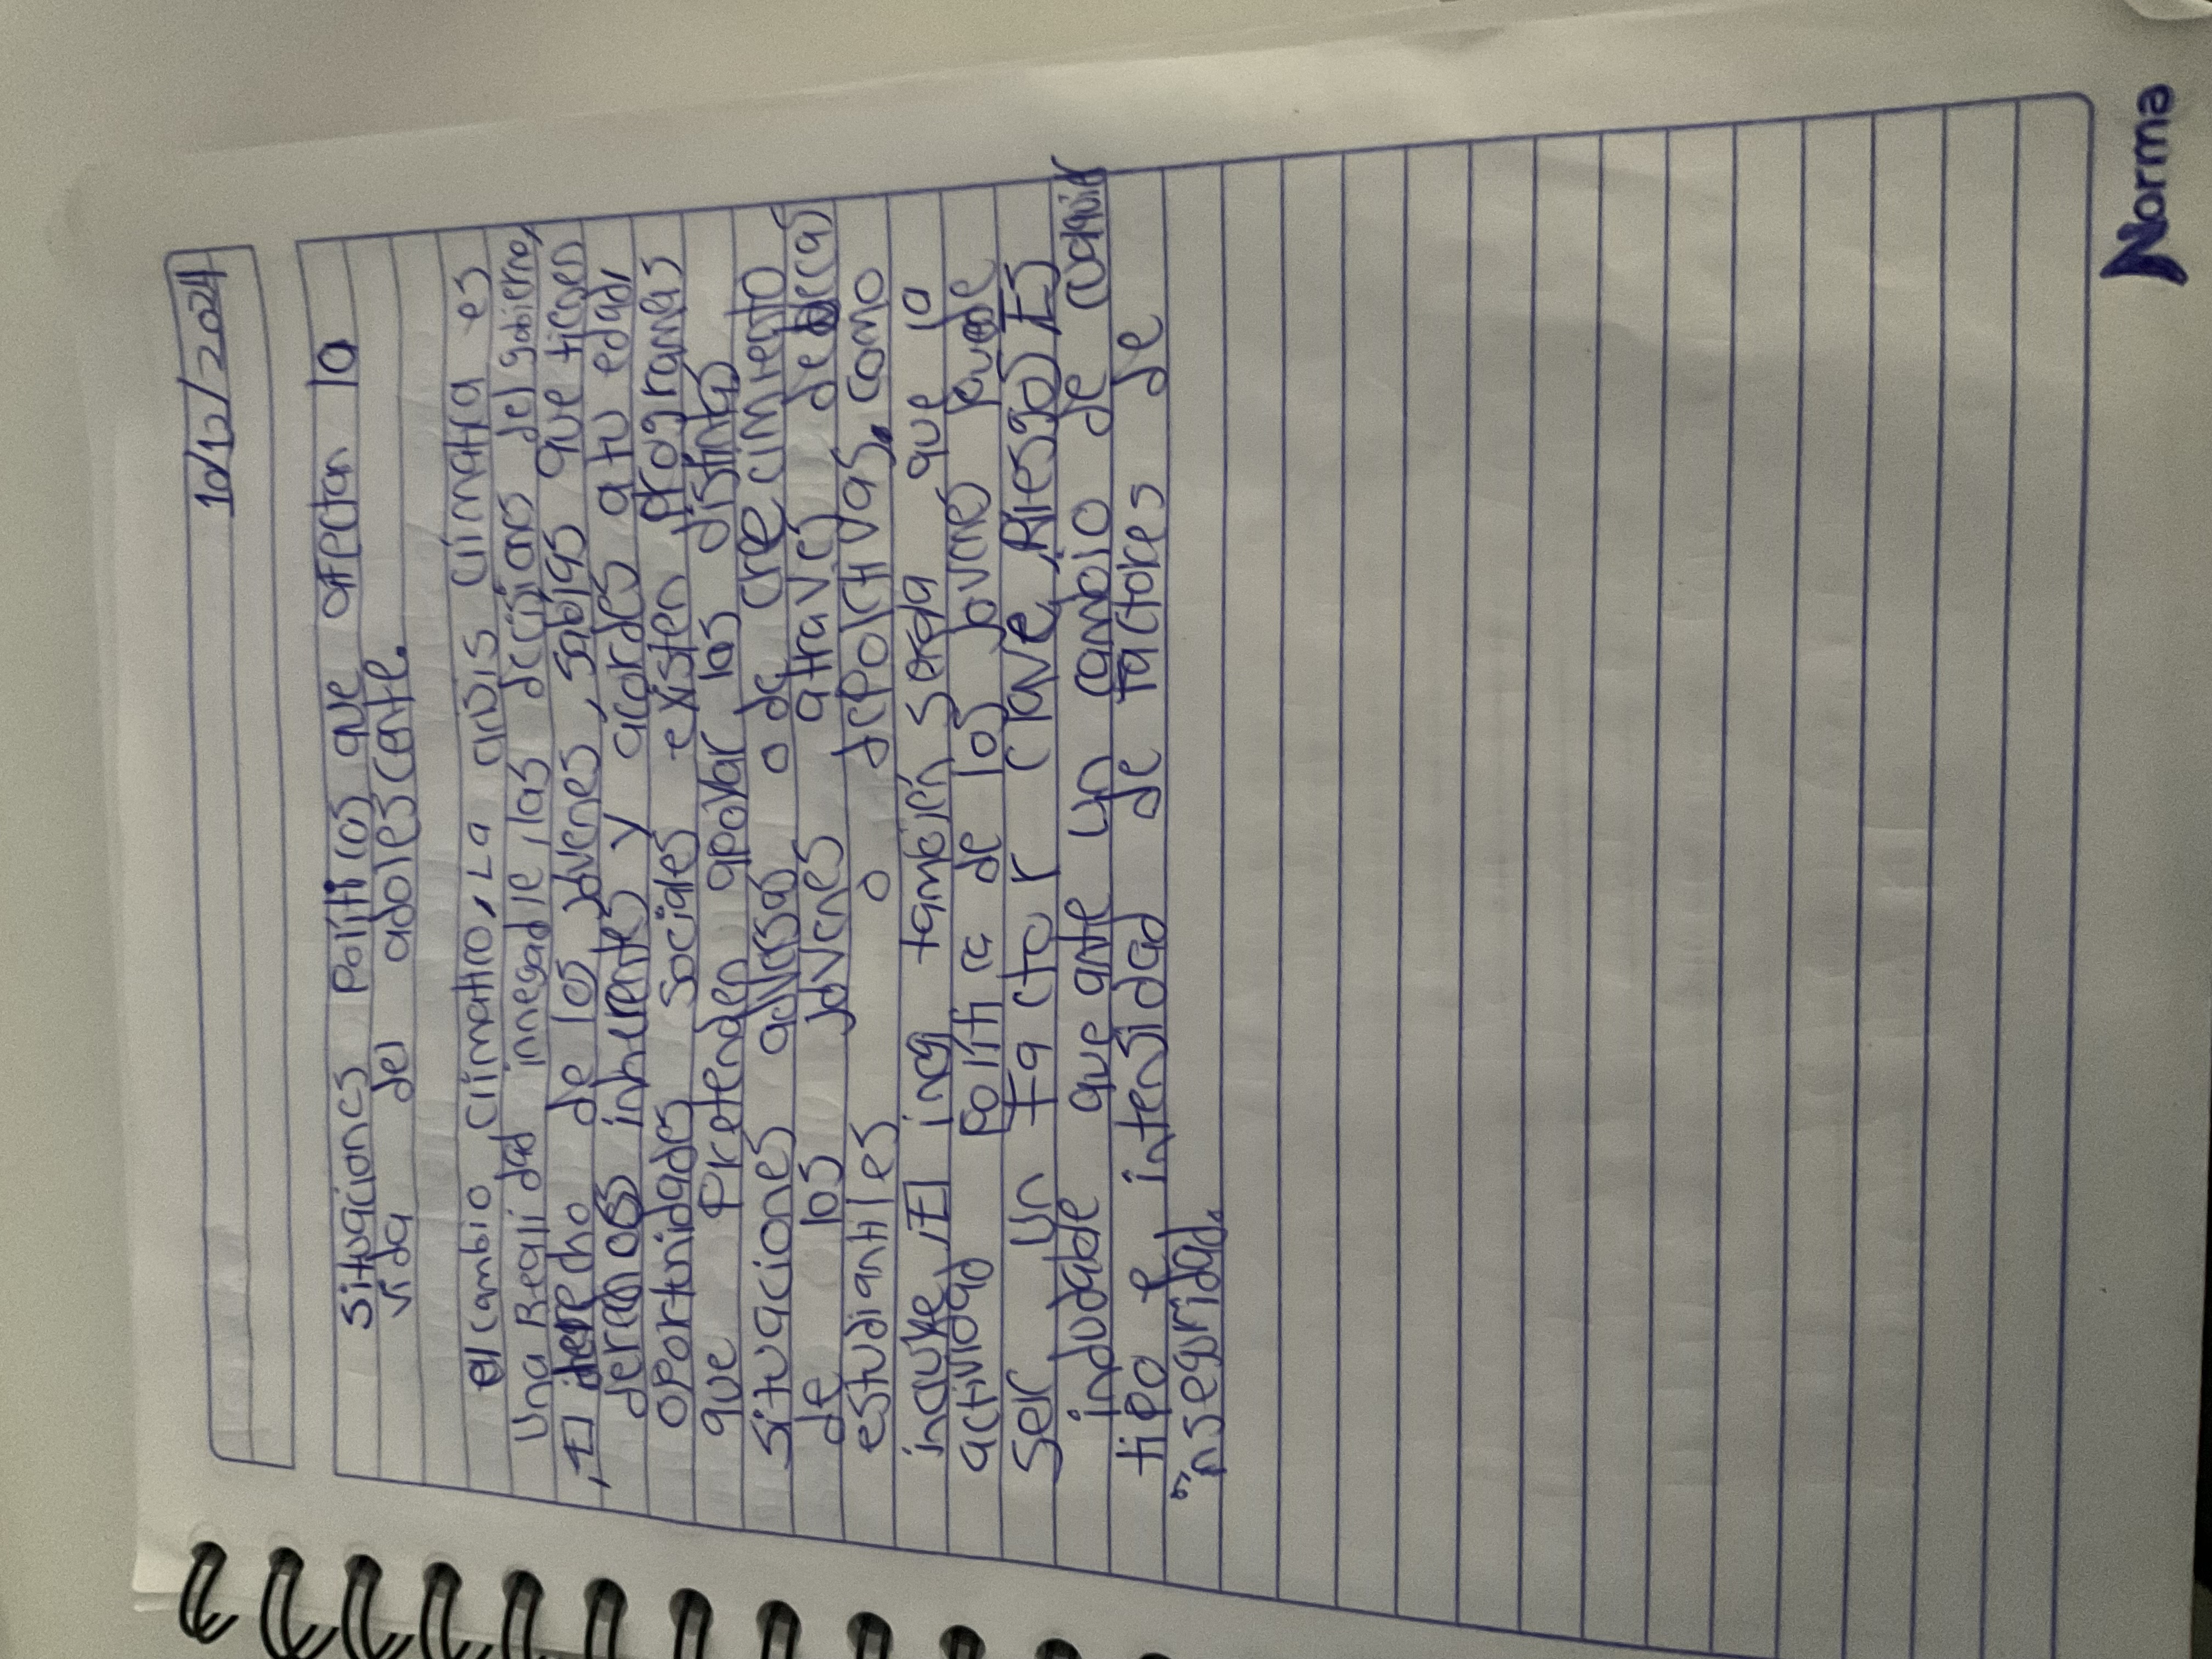 10/12/2024
Situaciones Políticas que afectan la
vida del adolescente.
el cambio climatico, La crisis climatica es
una Realidad innegable, las decisiones del gobierno,
, El derecho de los jovenes, sabias que tienen
derechos inherentes y acordes a tu edad,
oportunidades sociales existen programas
que Pretenden apoyar las distintas
situaciones adversas o de crecimiento
de los jovenes a través de becas
estudiantiles o deportivas. como
incluye, El también que la
actividad Política de los jovenes puede
ser un Factor clave, Riesgo, Es
indudable que ante un cambio de cualquier
tipo e intensidad de factores de
inseguridad.
Norma